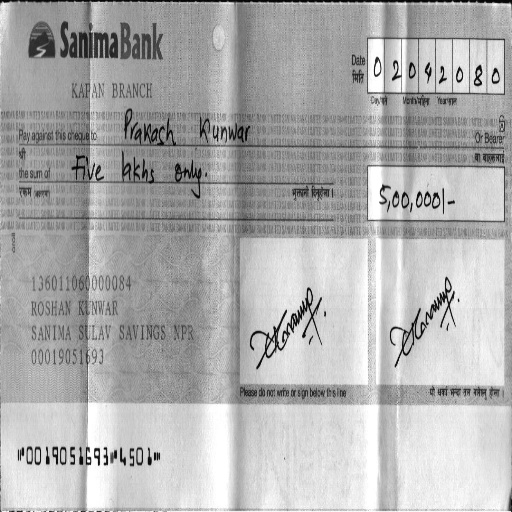 SanimaBank
KAPAN BRANCH
Date 0 2 0 4 2 0 8 0
मिति
Day/गते Month/महिना Year/साल
Pay against this cheque to Prakash Kunwar Or Bearer
श्री वा वाहकलाई
the sum of Five lakhs only.
रकम भुक्तानी दिनुहोला । 5,00,000/-
136011060000084
ROSHAN KUNWAR
SANIMA SULAV SAVINGS NPR
00019051693
Please do not write or sign below this line
⑈0019051693⑈4501⑈